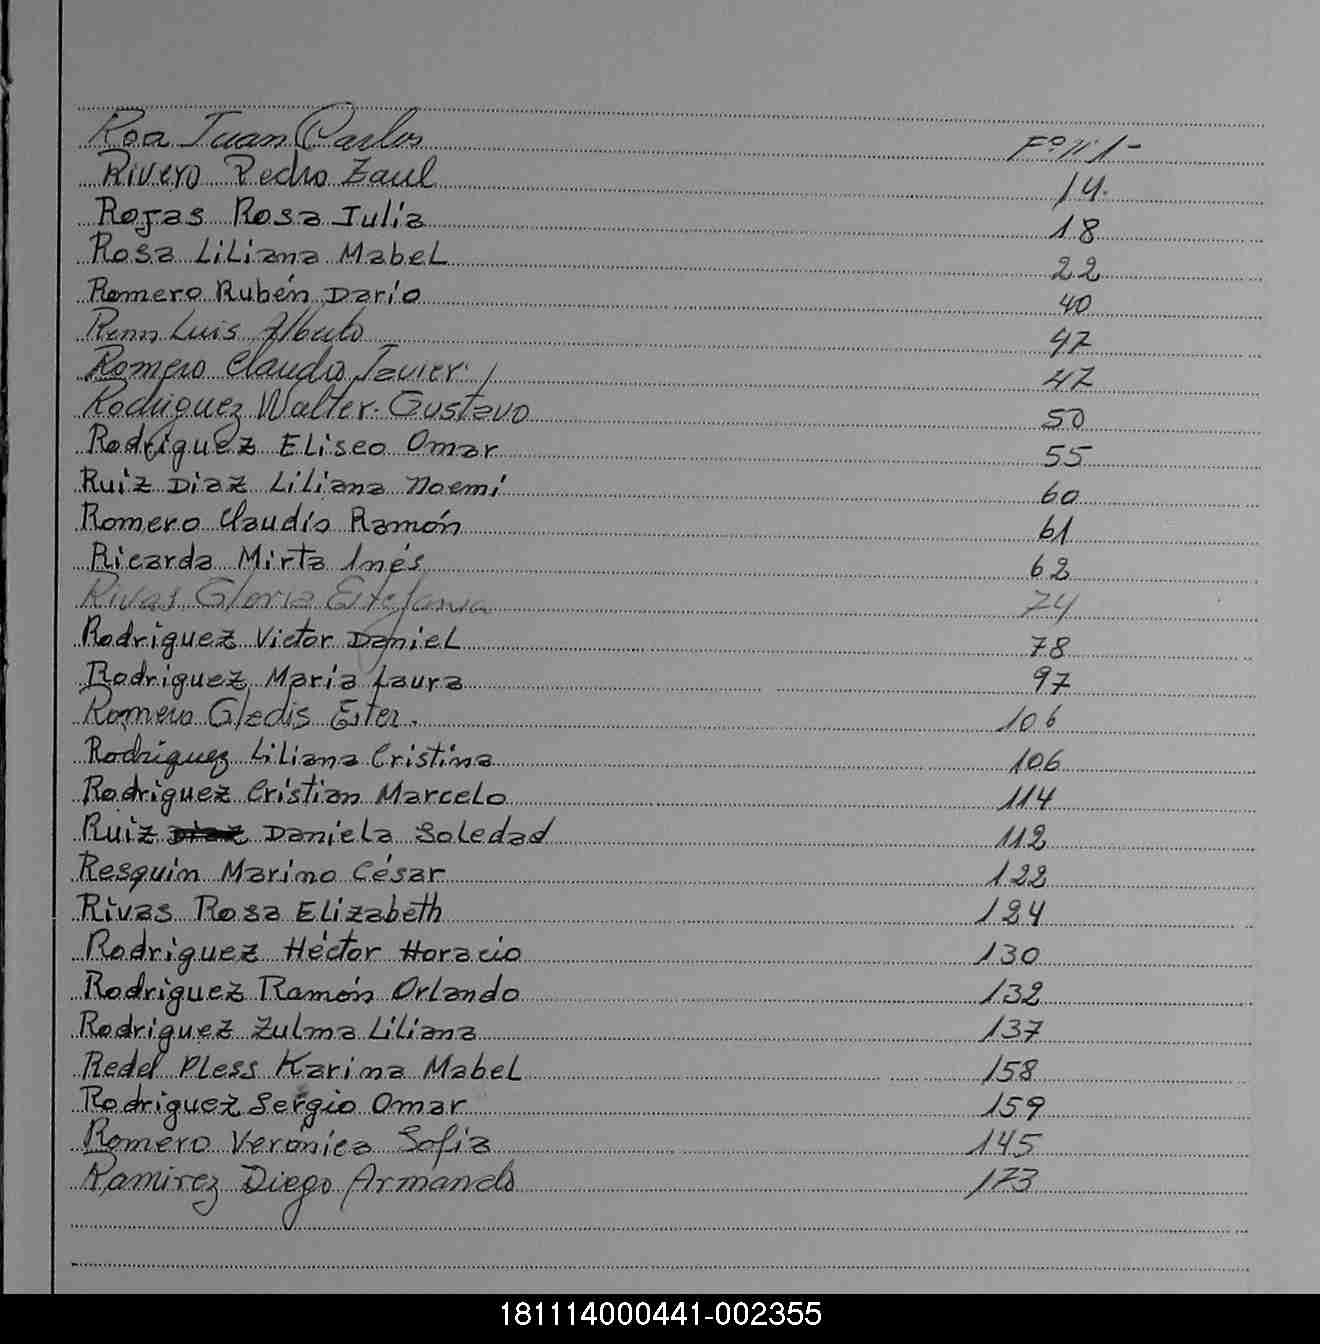 Roa Juan Carlos Fº Nº 1-
Rivero Pedro Zaul 14.
Rojas Rosa Julia 18
Rosa Liliana Mabel 22
Romero Rubén Dario 40
Renn Luis Alberto 47
Romero Claudio Javier 47
Rodriguez Walter Gustavo 50
Rodriguez Eliseo Omar 55
Ruiz Diaz Liliana Noemí 60
Romero Claudio Ramón 61
Ricarda Mirta Inés 62
Rivas Gloria Estefania 74
Rodriguez Victor Daniel 78
Rodriguez Maria Laura 97
Romero Gladis Ester. 106
Rodriguez Liliana Cristina 106
Rodriguez Cristian Marcelo 114
Ruiz Daniela Soledad 112
Resquin Marino César 122
Rivas Rosa Elizabeth 124
Rodriguez Héctor Horacio 130
Rodriguez Ramón Orlando 132
Rodriguez Zulma Liliana 137
Redel Pless Karina Mabel 158
Rodriguez Sergio Omar 159
Romero Veronica Sofia 145
Ramirez Diego Armando 173
181114000441-002355